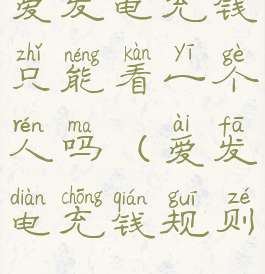 爱发电充钱
zhǐ néng kàn yī gè
只能看一个
rén ma ài fā
人吗（爱发
diàn chōng qián guī zé
电充钱规则